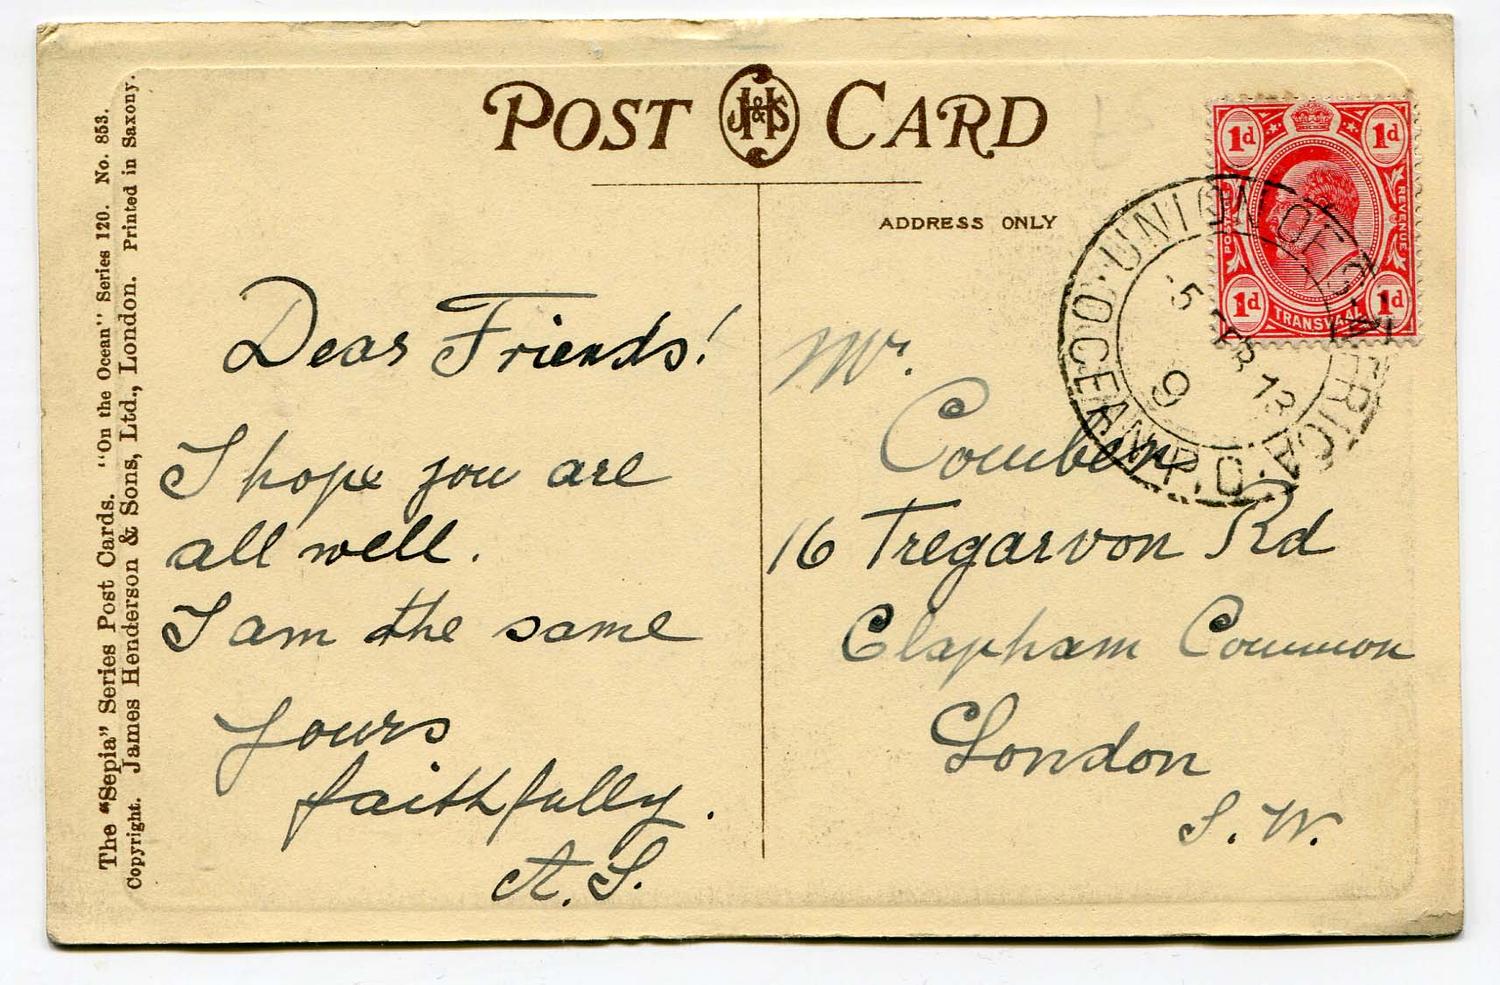 The "Sepia" Series Post Cards. "On the Ocean" Series 120. No. 853.
Copyright. James Henderson & Sons, Ltd., London. Printed in Saxony.
POST J.H&S CARD
ADDRESS ONLY
Dear Friends!
I hope you are
all well.
I am the same
yours
faithfully.
A. S.
Mr.
Comben
16 Tregarvon Rd
Clapham Common
London
S. W.
1d 1d
REVENUE
1d TRANSVAAL 1d
UNION OF S. AFRICA
OCEAN P.O.
5
13
9